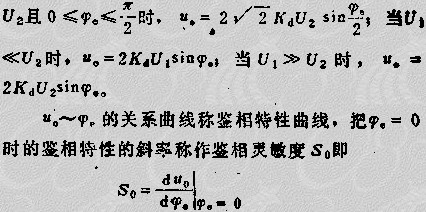 U₂且 0 ≤ φₑ ≤ π/2 时, uₒ = 2√2 K_d U₂ sin φₑ/2; 当U₁
≪U₂时, uₒ = 2K_dU₁sinφₑ; 当 U₁ ≫ U₂ 时, uₒ =
2K_dU₂sinφₑ。
uₒ～φₑ 的关系曲线称鉴相特性曲线, 把φₑ = 0
时的鉴相特性的斜率称作鉴相灵敏度 S₀即
S₀ = duₒ/dφₑ |φₑ = 0